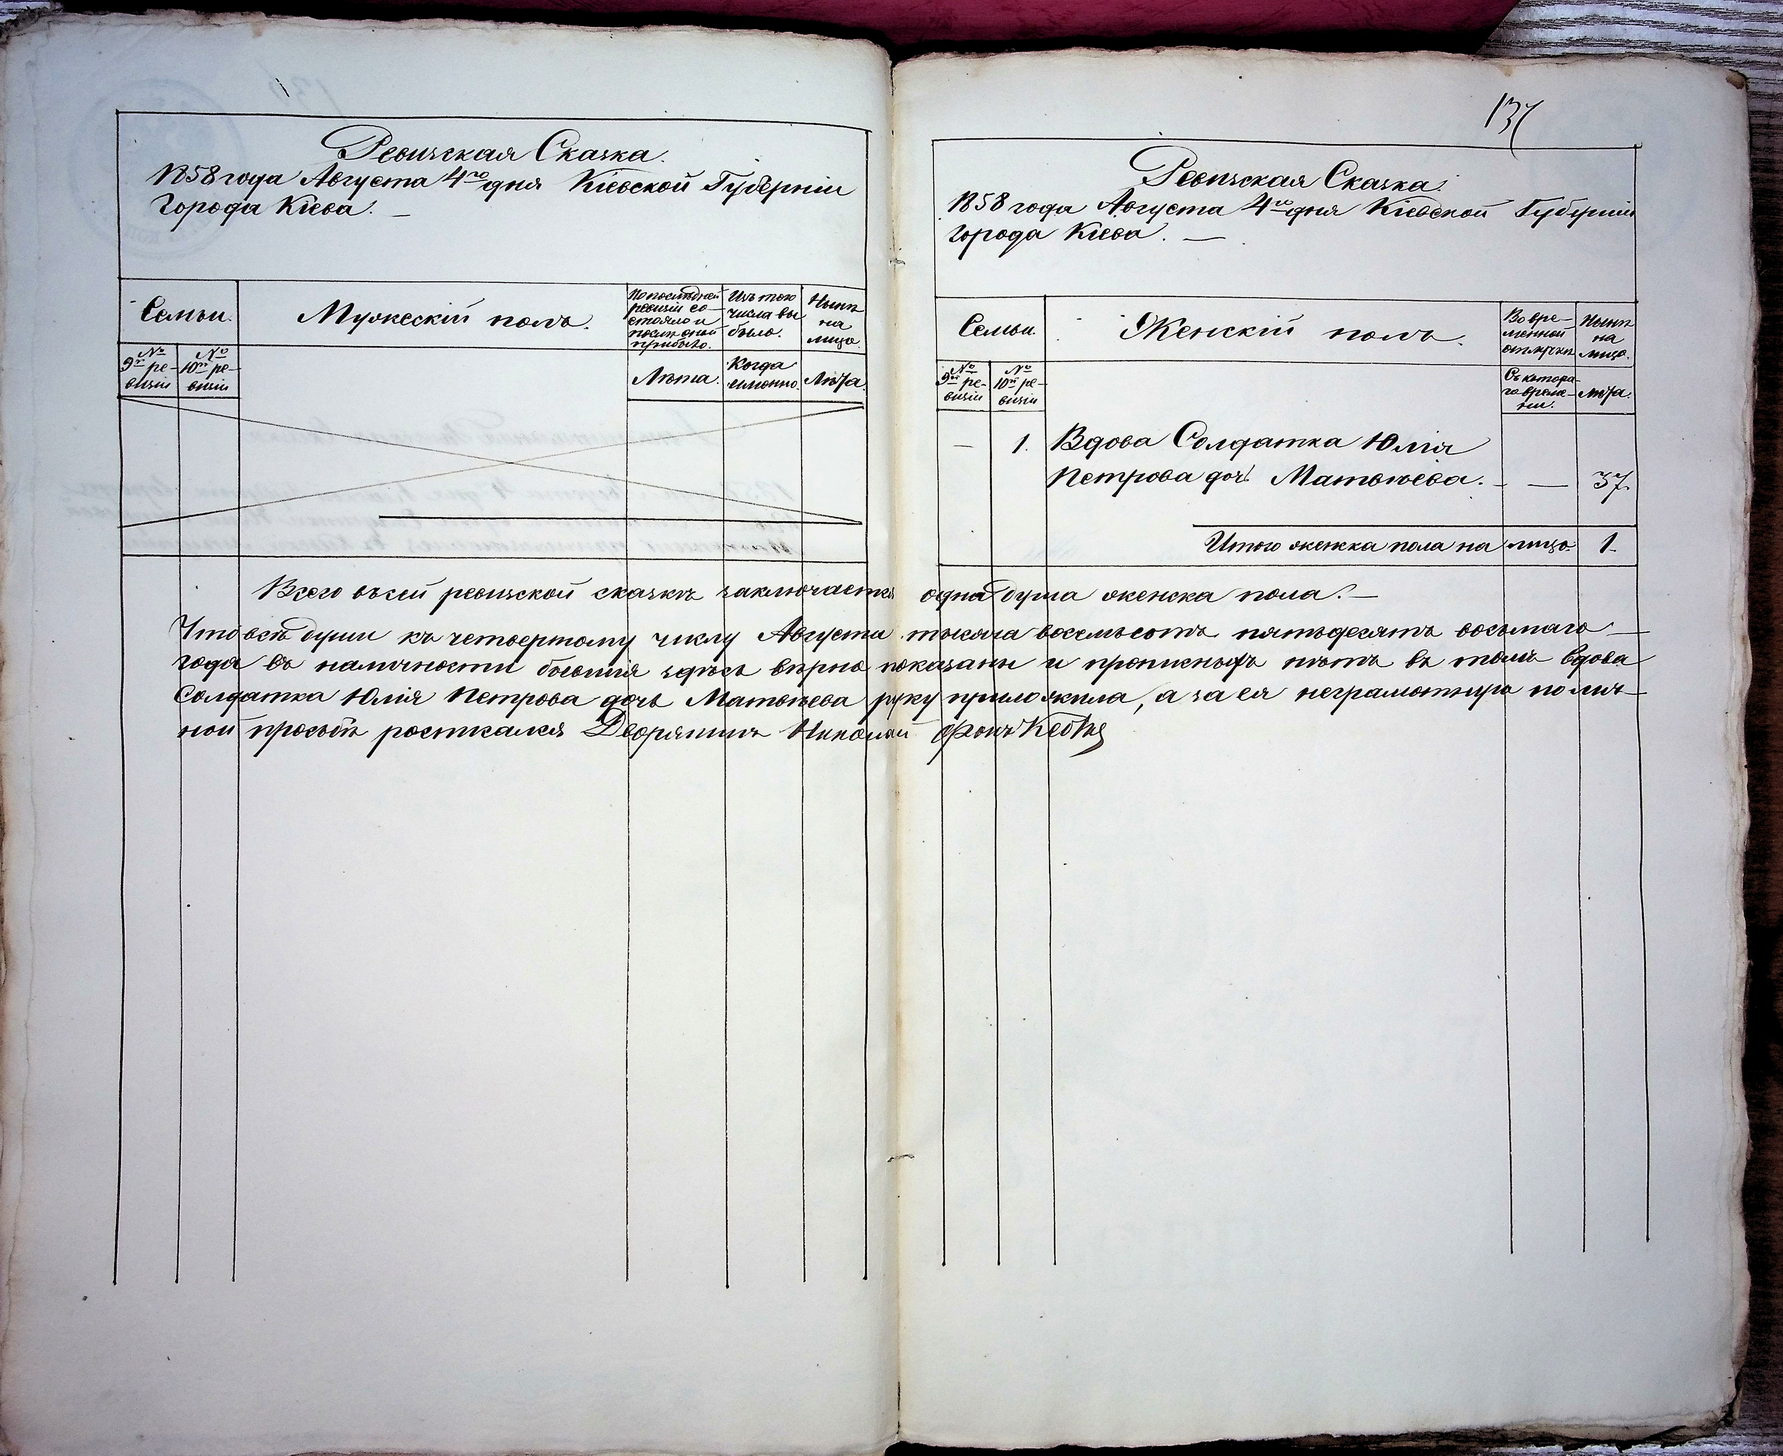 Ревизская Сказка.
1858 года Августа 4го дня Кіевской Губерніи
Города Кіева. —
Семьи.
Мужескій полъ.
По последней
ревизіи со-
стояло и
после оной
прибыло.
Изъ того
числа вы
было.
Нынѣ
на
лицо.
№
9й ре-
визіи
№
10й ре-
визіи
Лѣта.
Когда
именно.
Лѣта.
137
Ревизская Сказка.
1858 года Августа 4го дня Кіевской Губерніи
Города Кіева. —
Семьи
Женскій полъ.
Во вре-
менной
отлучкѣ
Нынѣ
на
лицо.
№
9й ре-
визіи
№
10й ре-
визіи
Съ котора-
го време-
ни.
Лѣта.
— 1. Вдова Солдатка Юлія
Петрова дочь Матвѣева. — — 37.
Итого женска пола на лицо 1.
Всего въ сей ревизской сказкѣ заключается одна душа женска пола. —
Что всѣ души къ четвертому числу Августа тысяча восемьсотъ пятьдесятъ восьмаго —
года въ наличности бывшія здѣсь вѣрно показаны и прописныхъ нѣтъ въ томъ вдова
Солдатка Юлія Петрова дочь Матвѣева руку приложила, а за ея неграмотную по лич-
ной просьбѣ росписался Дворянинъ Николай Фонъ